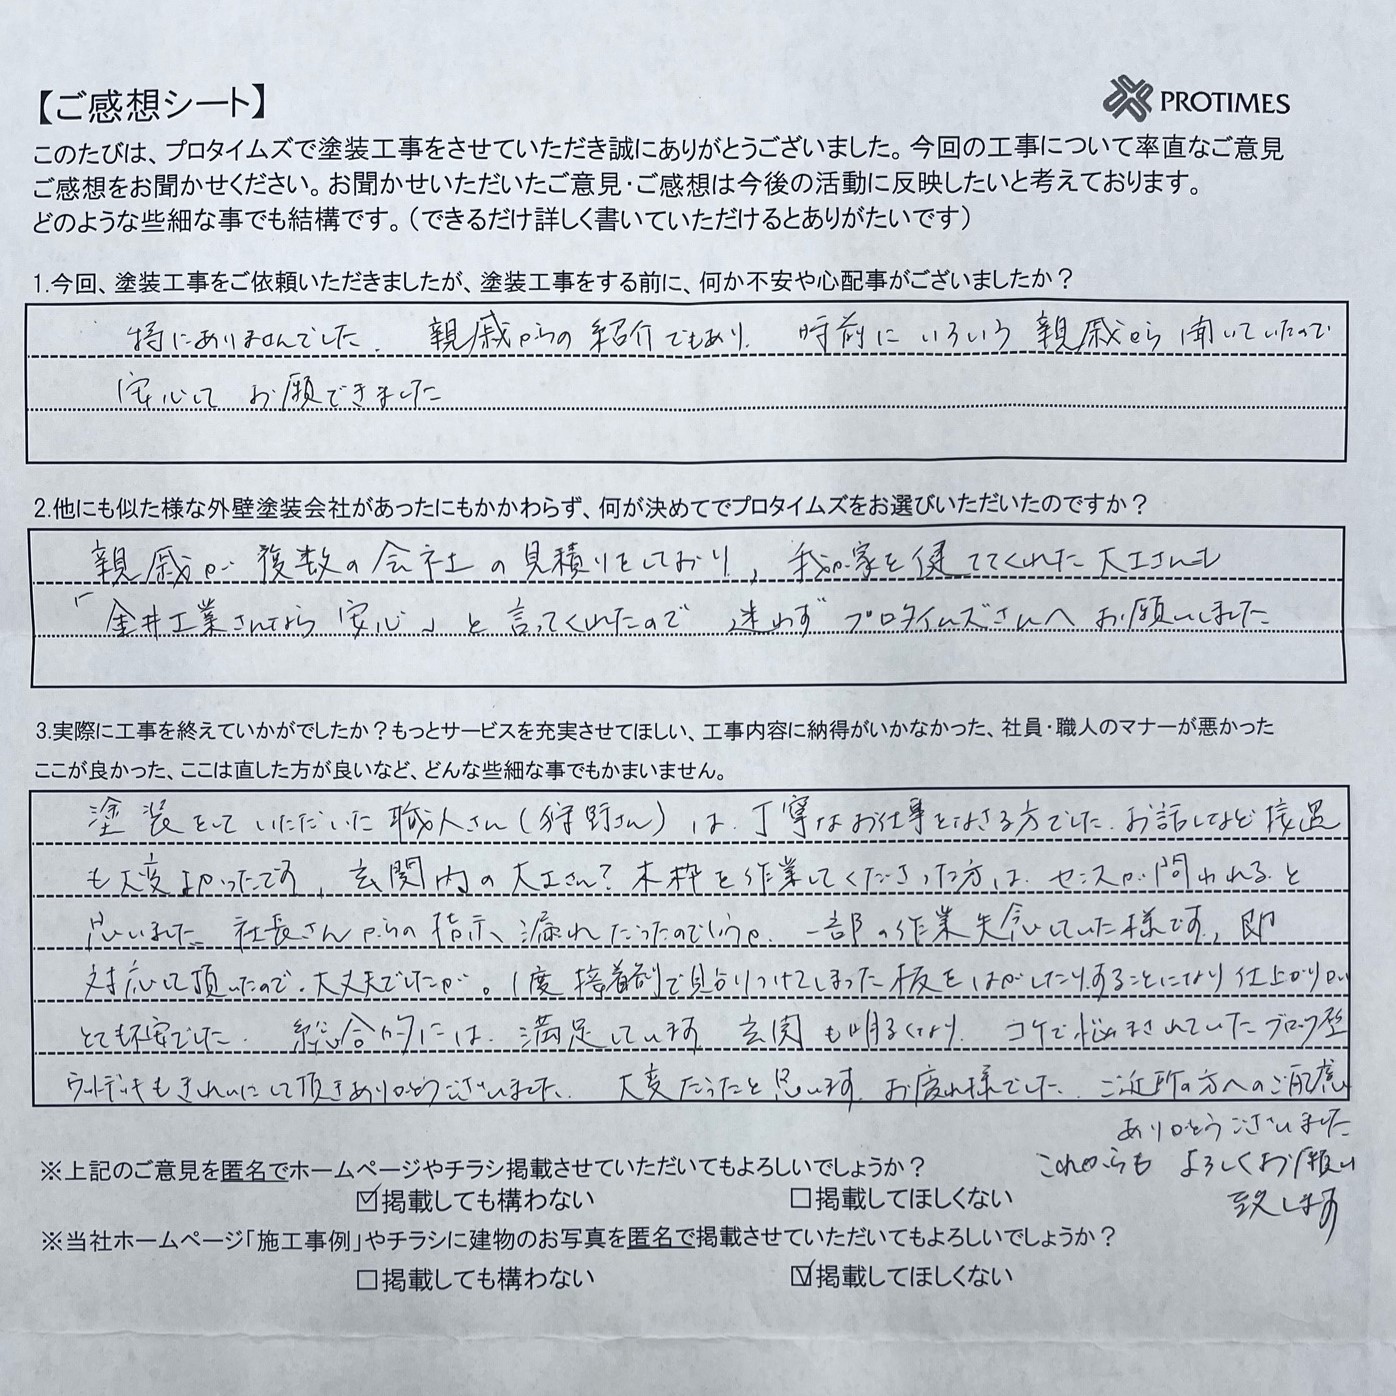 【ご感想シート】
PROTIMES
このたびは、プロタイムズで塗装工事をさせていただき誠にありがとうございました。今回の工事について率直なご意見
ご感想をお聞かせください。お聞かせいただいたご意見・ご感想は今後の活動に反映したいと考えております。
どのような些細な事でも結構です。（できるだけ詳しく書いていただけるとありがたいです）
1.今回、塗装工事をご依頼いただきましたが、塗装工事をする前に、何か不安や心配事がございましたか？
特にありませんでした. 親戚からの紹介でもあり. 時前にいろいろ親戚から聞いていたので
安心してお願できました
2.他にも似た様な外壁塗装会社があったにもかかわらず、何が決めてでプロタイムズをお選びいただいたのですか？
親戚が複数の会社の見積りをしており、我が家を健ててくれた大工さんも
「金井工業さんなら安心」と言ってくれたので 迷わずプロタイムズさんへお願いしました
3.実際に工事を終えていかがでしたか？もっとサービスを充実させてほしい、工事内容に納得がいかなかった、社員・職人のマナーが悪かった
ここが良かった、ここは直した方が良いなど、どんな些細な事でもかまいません。
塗装をしていただいた職人さん(狩野さん)は、丁寧なお仕事をなさる方でした. お話しなど接遇
も大変よかったです、玄関内の大工さん？木枠を作業してくださった方は、センスが問われると
思いました。社長さんからの指示、漏れだったのでしょうか. 一部の作業失念していた様です、即
対応して頂いたので、大丈夫でしたが。1度接着剤で貼りつけてしまった板をはがしたりすることになり仕上がりが
とても不安でした. 総合的には、満足しています 玄関も明るくなり. コケで悩まされていたブロック塀
ウッドデッキもきれいにして頂きありがとうございました. 大変だったと思います. お疲れ様でした. ご近所の方へのご配慮
ありがとうございました
これからも よろしくお願い
致します
※上記のご意見を匿名でホームページやチラシ掲載させていただいてもよろしいでしょうか？
☑掲載しても構わない □掲載してほしくない
※当社ホームページ「施工事例」やチラシに建物のお写真を匿名で掲載させていただいてもよろしいでしょうか？
□掲載しても構わない ☑掲載してほしくない